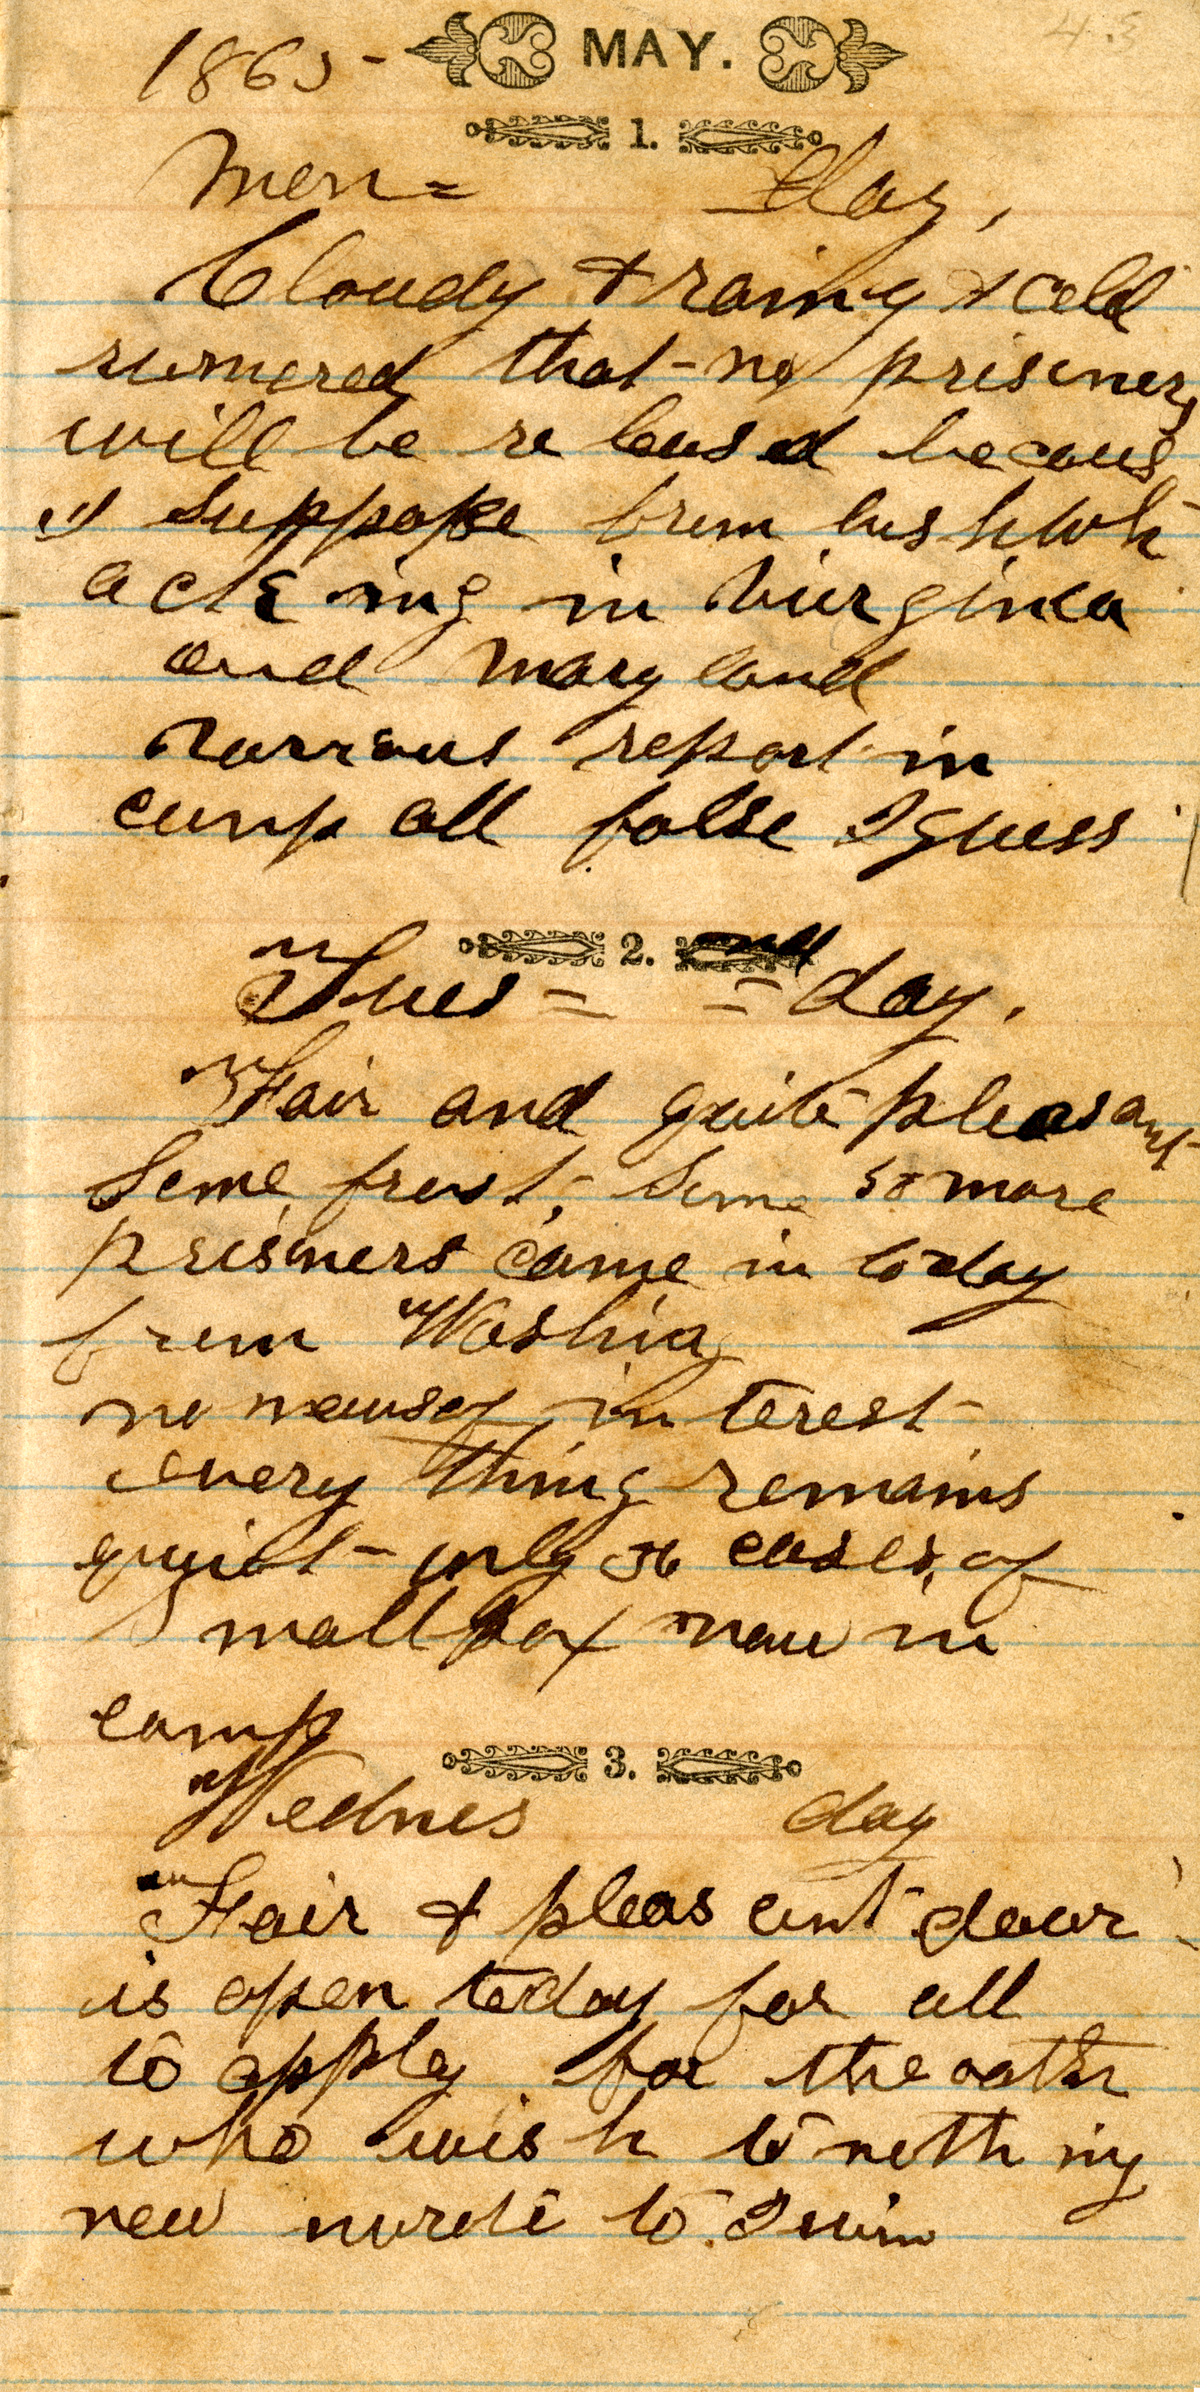 1865 - MAY.
1.
Mon= day,
Cloudy & rainy & cold
rumored that no prisoners
will be re leased becaus
I suppose from bushwh
acking in Virginia
and Mary land
various report in
camp all false I guess
2.
Tues = = day.
Fair and quite pleasant
Some frost, Some 50 more
prisners came in today
from Washing
no news of in terest
every thing remains
quiet - only 56 cases, of
Small pox now in
camp
3.
Wednes day
Fair & pleas ent door
is open today for all
to apply for the oath
who wish to noth ing
new wrote to